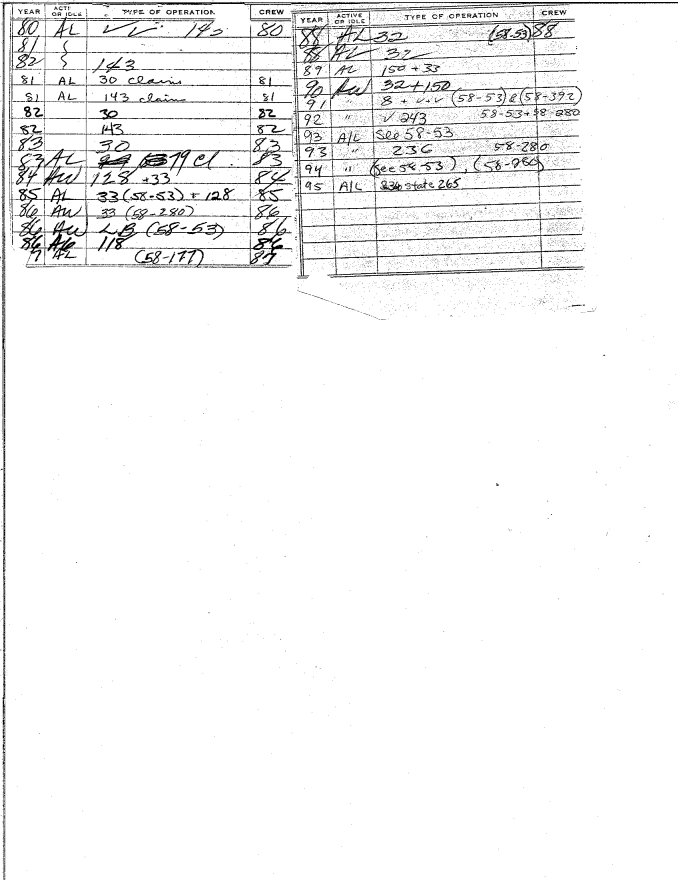 YEAR ACTI OR IDLE TYPE OF OPERATION CREW
80 AL 143 80
81
82 143
81 AL 30 claims 81
81 AL 143 claims 81
82 30 82
82 143 82
83 30 83
83 AL 79 cl. 83
84 AW 128 +33 84
85 AL 33 (58-53) + 128 85
86 AW 33 (58-280) 86
86 AW LB (58-53) 86
86 118 86
7 AL (58-177) 87
YEAR ACTIVE OR IDLE TYPE OF OPERATION CREW
88 AL 32 (58-53) 88
88 AL 32
89 AL 150 + 33
90 AW 32 + 150
91 " 8 + (58-53) & (58-392)
92 " 243 58-53 + 58-280
93 A/L See 58-53
93 " 236 58-280
94 " (see 58-53), (58-280)
95 A/L 236 state 265